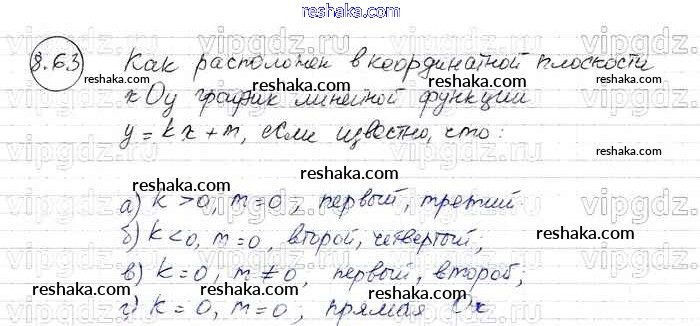 reshaka.com
8.63 Как расположен в координатной плоскости
reshaka.com reshaka.com
xOy график линейной функции
y = kx + m, если известно, что:
reshaka.com
а) k > 0, m = 0; первый, третий
reshaka.com reshaka.com
б) k < 0, m = 0, второй, четвертый;
reshaka.com
в) k = 0, m ≠ 0, первый, второй;
reshaka.com reshaka.com
г) k = 0, m = 0; прямая Ox